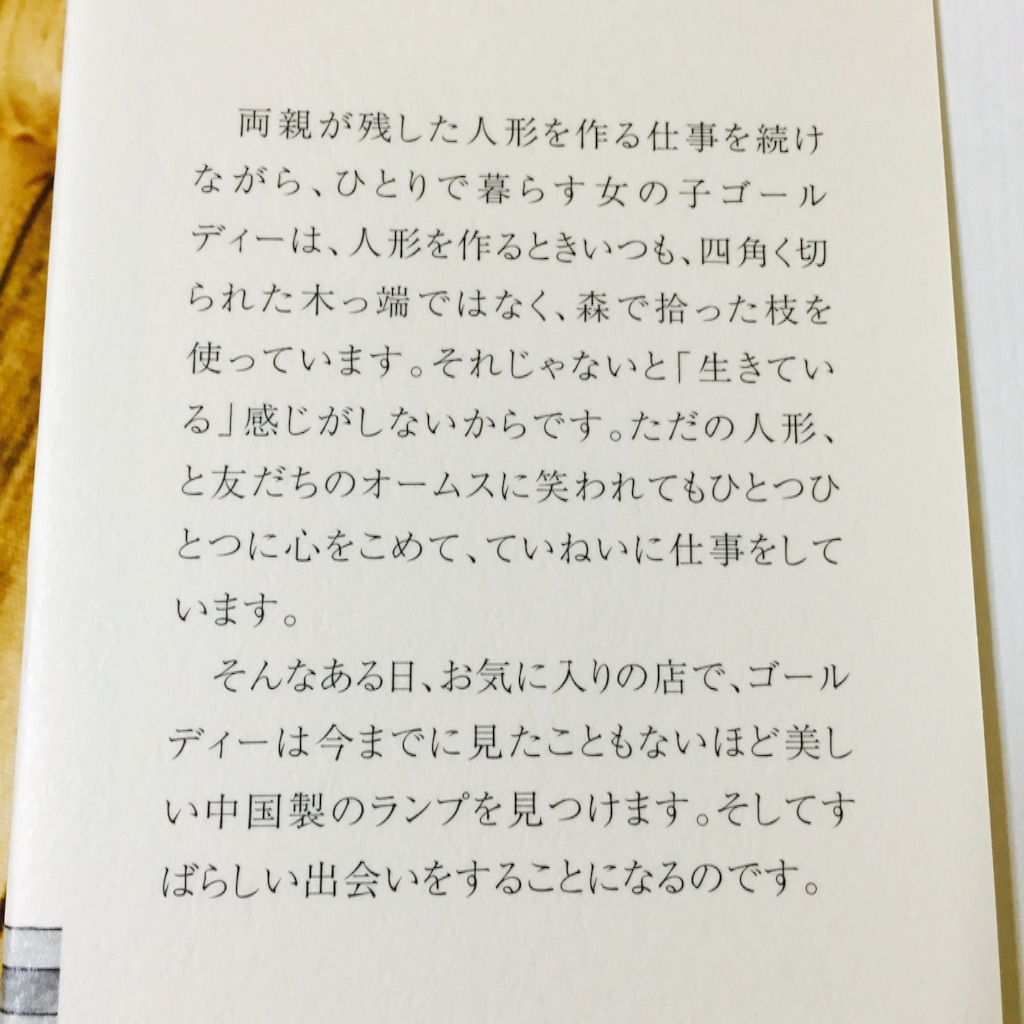 両親が残した人形を作る仕事を続け
ながら、ひとりで暮らす女の子ゴール
ディーは、人形を作るときいつも、四角く切
られた木っ端ではなく、森で拾った枝を
使っています。それじゃないと「生きてい
る」感じがしないからです。ただの人形、
と友だちのオームスに笑われてもひとつひ
とつに心をこめて、ていねいに仕事をして
います。
そんなある日、お気に入りの店で、ゴール
ディーは今までに見たこともないほど美し
い中国製のランプを見つけます。そしてす
ばらしい出会いをすることになるのです。